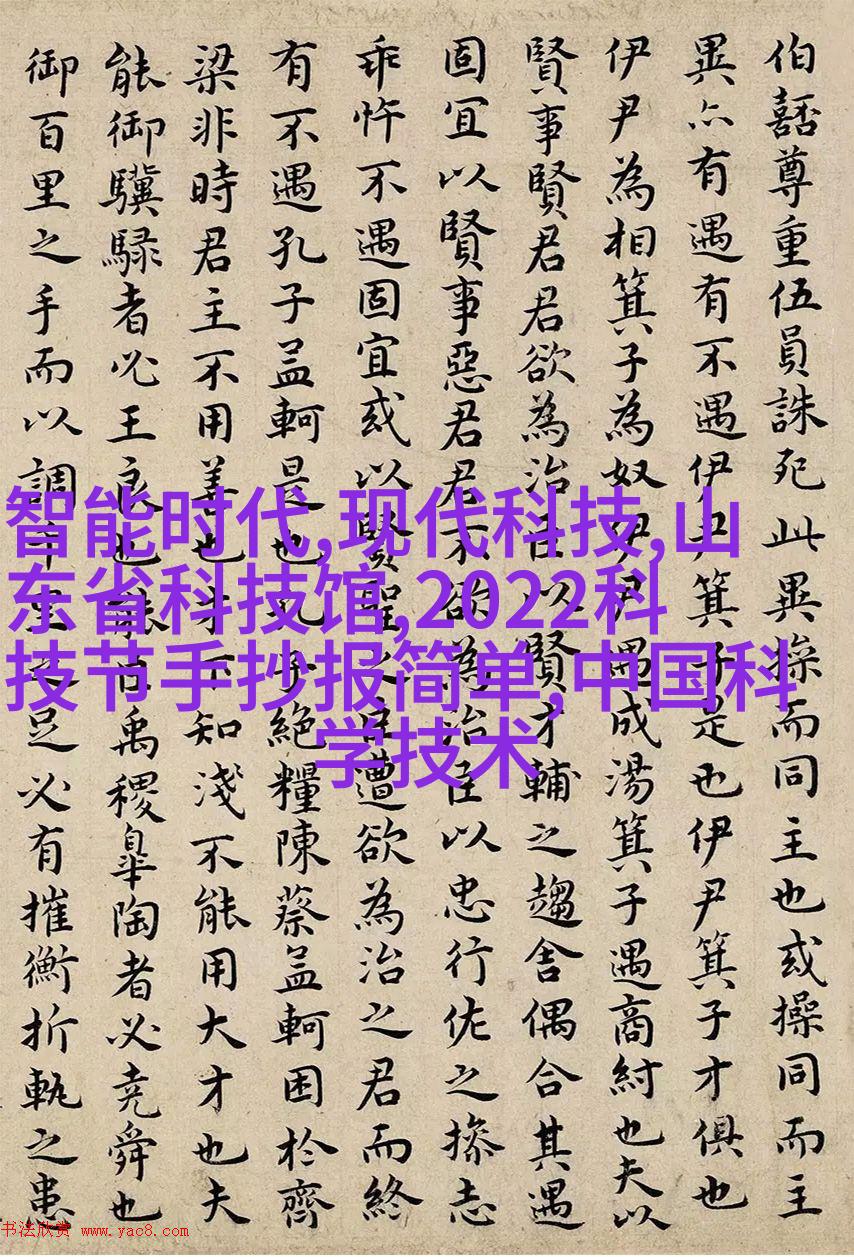 伯嚭尊重伍員誅死此異操而同主也或操同而主
異亦有遇有不遇伊尹箕子是也伊尹箕子才俱也
伊尹為相箕子為奴伊尹遇成湯箕子遇商紂也夫以
賢事賢君君欲為治臣以賢才輔之趨舍偶合其遇
固宜以賢事惡君君不欲為治臣以忠行佐之操志
乖忤不遇固宜或以賢聖之臣遭欲為治之君而終
有不遇孔子孟軻是也孔子絕糧陳蔡孟軻困於齊
梁非時君主不用善也才下知淺不能用大才也夫
能御驥騄者必王良也能臣禹稷皋陶者必堯舜也
御百里之手而以調千里之足必有摧衡折軛之患
智能时代,现代科技,山
东省科技馆,2022科
技节手抄报简单,中国科
学技术
书法欣赏 www.yac8.com